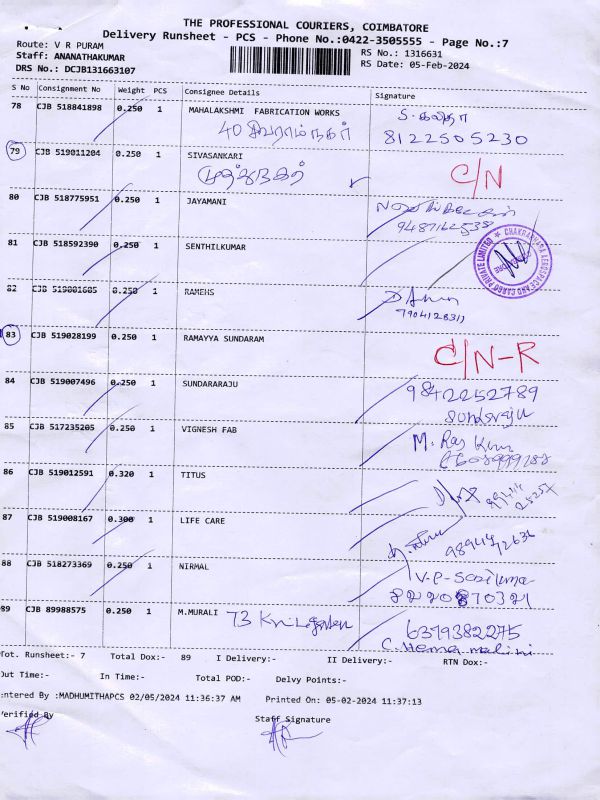 THE PROFESSIONAL COURIERS, COIMBATORE
Delivery Runsheet - PCS - Phone No.:0422-3505555 - Page No.:7
Route: V R PURAM
Staff: ANANATHAKUMAR
DRS No.: DCJB131663107
RS No.: 1316631
RS Date: 05-Feb-2024
S No Consignment No Weight PCS Consignee Details Signature
78 CJB 518841898 0.250 1 MAHALAKSHMI FABRICATION WORKS
40 சிவராம் நகர் 8122505230
79 CJB 519011204 0.250 1 SIVASANKARI
C/N
80 CJB 518775951 0.250 1 JAYAMANI
81 CJB 518592390 0.250 1 SENTHILKUMAR
82 CJB 519001605 0.250 1 RAMEHS
83 CJB 519028199 0.250 1 RAMAYYA SUNDARAM
C/N-R
84 CJB 519007496 0.250 1 SUNDARARAJU 9842252789
85 CJB 517235205 0.250 1 VIGNESH FAB
86 CJB 519012591 0.320 1 TITUS
87 CJB 519008167 0.300 1 LIFE CARE
88 CJB 518273369 0.250 1 NIRMAL
89 CJB 89988575 0.250 1 M.MURALI 73
6379382275
C. Hema malini
Tot. Runsheet:- 7 Total Dox:- 89 I Delivery:- II Delivery:- RTN Dox:-
Out Time:- In Time:- Total POD:- Delvy Points:-
ntered By :MADHUMITHAPCS 02/05/2024 11:36:37 AM Printed On: 05-02-2024 11:37:13
Verified By Staff Signature